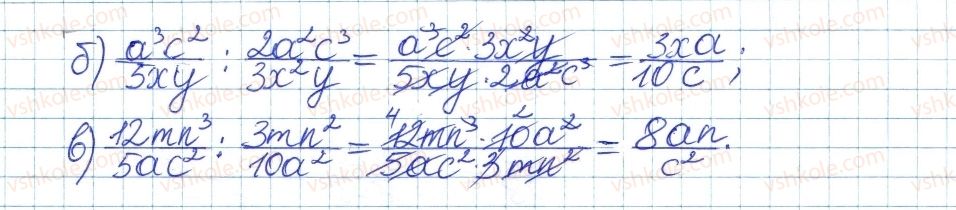 б) a³c²/5xy : 2a²c³/3x²y = a³c²·3x²y/5xy·2a²c³ = 3xa/10c;
в) 12mn³/5ac² : 3mn²/10a² = 4 12mn³·2 10a²/5ac²·3mn² = 8an/c².